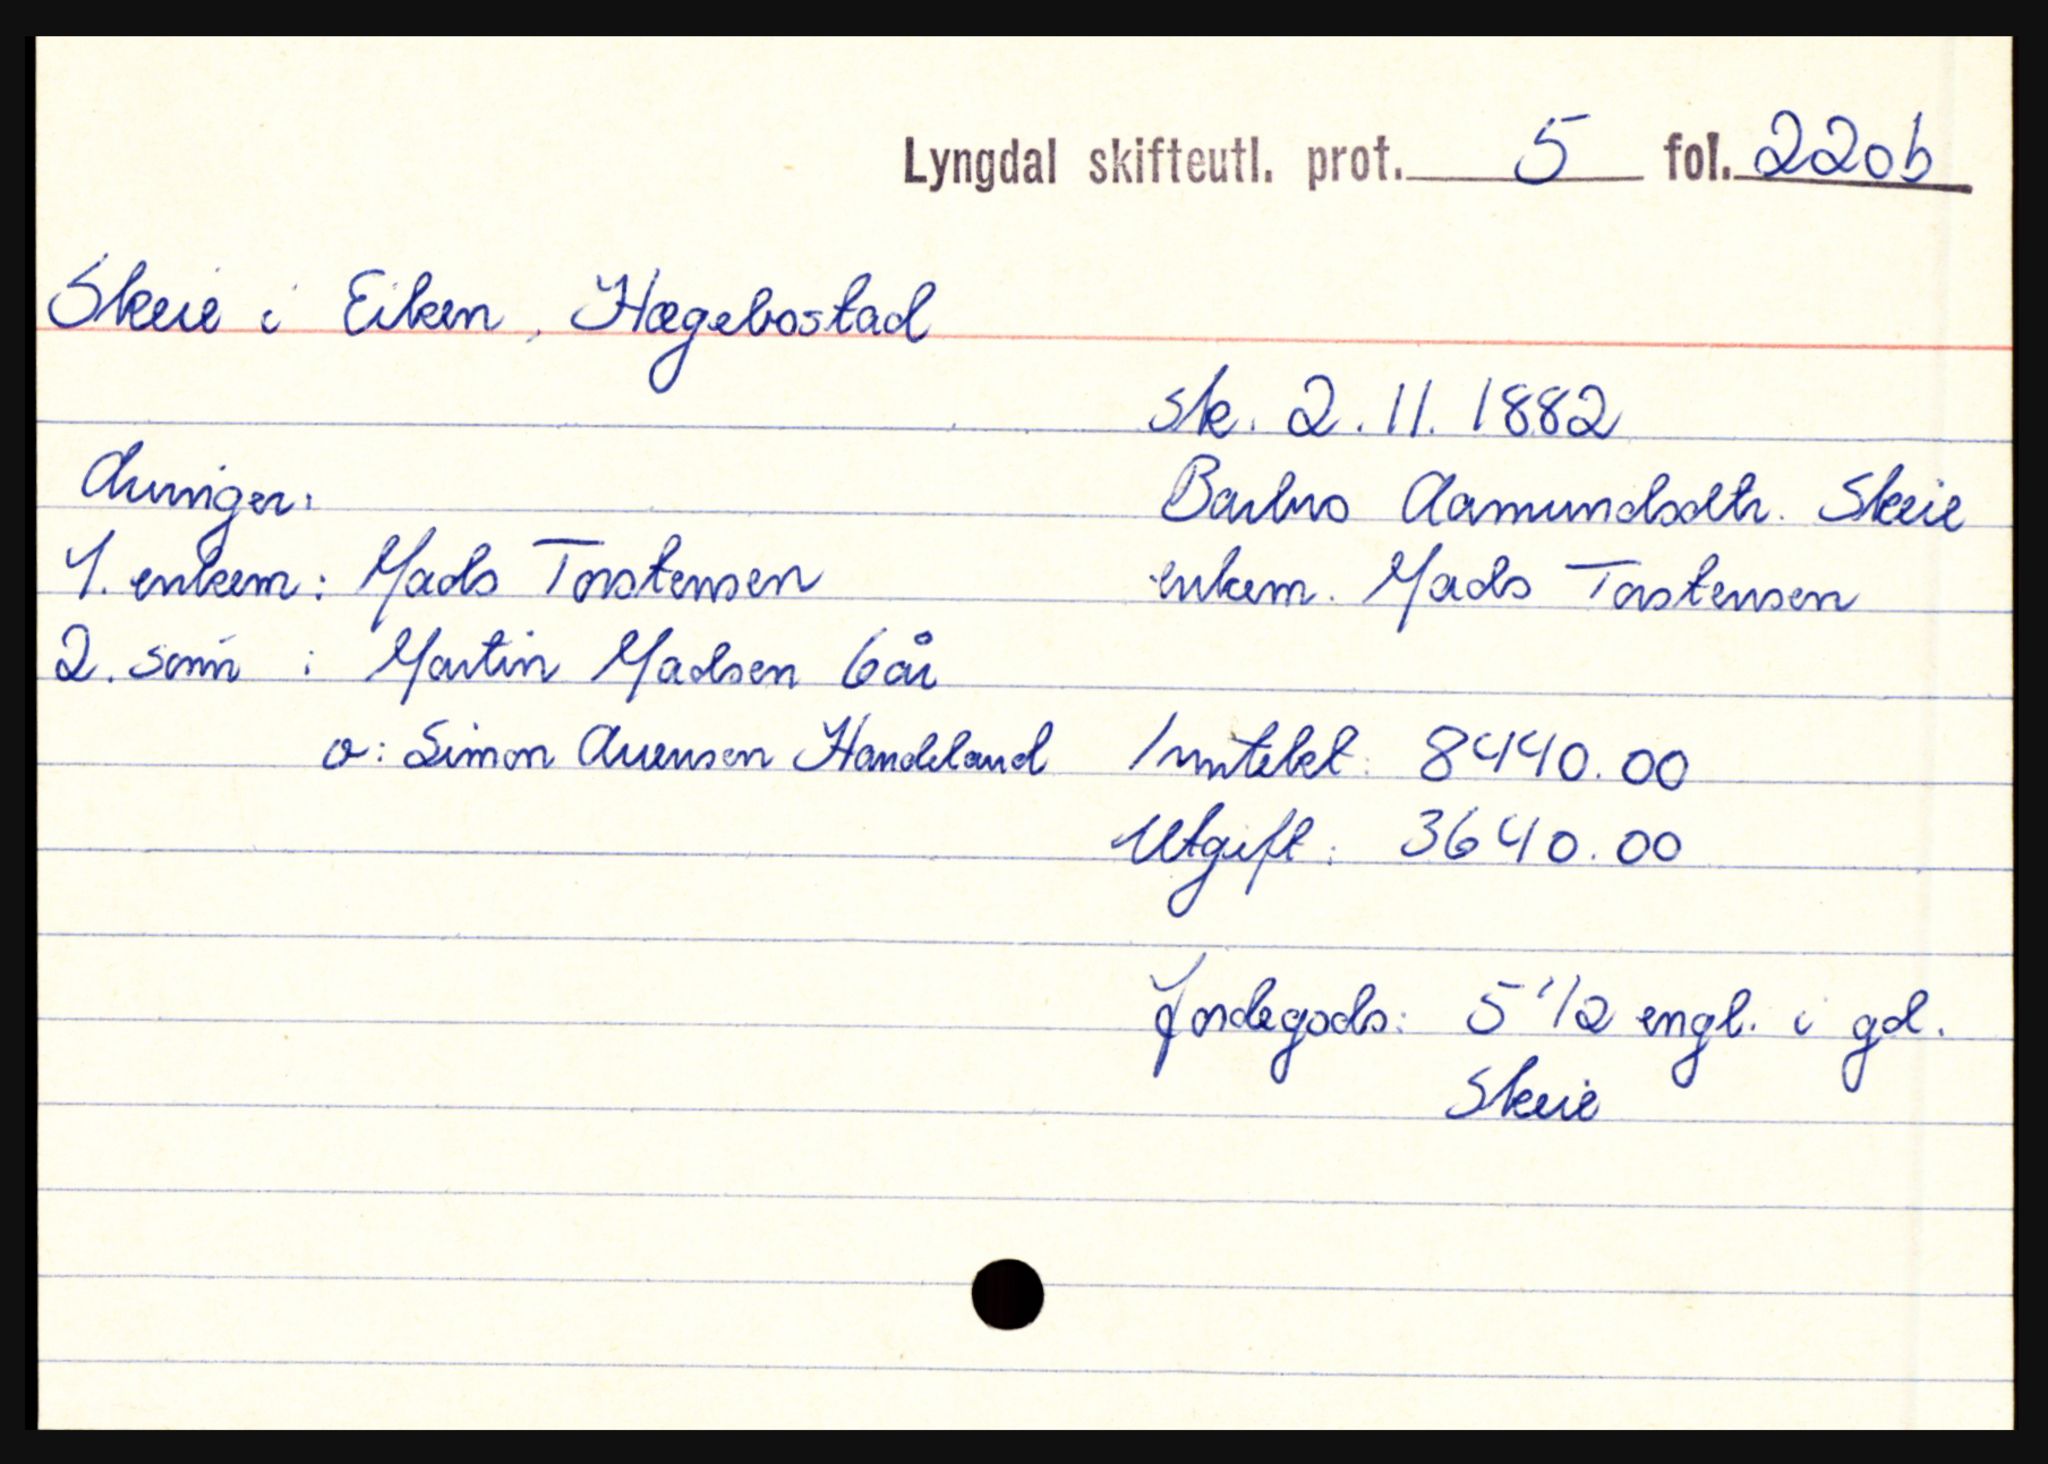 Lyngdal skifteutl. prot. 5 fol. 220b
Skeie i Eiken, Hægebostad
sk. 2.11.1882
Arvinger:
Barbro Aamundsdtr. Skeie
1. enkem: Mads Torstensen
enkem. Mads Torstensen
2. sønn: Martin Madsen 6 år
o: Simon Arensen Handeland
Inntekt: 8440.00
Utgift: 3640.00
Jordegods: 5 1/2 engl. i gd.
Skeie